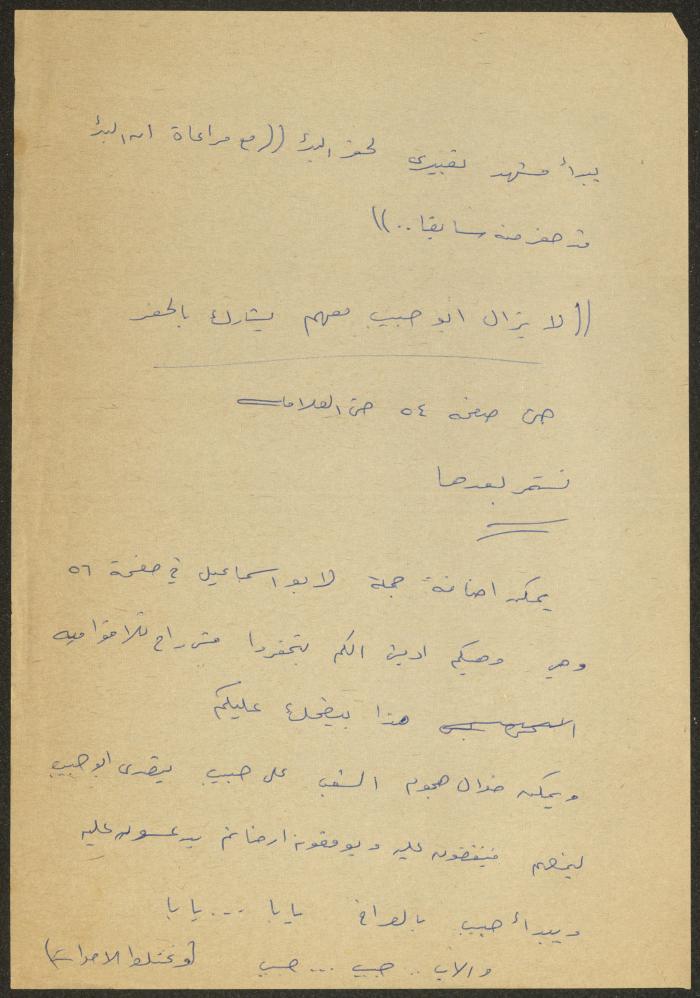 يبدأ مشهد تعبيري لحفر البئر ((مع مراعاة ان البئر
قد حفر منه سابقا..))
((لا يزال ابو حبيب معهم يشارك بالحفر
حتى صفحة ٥٤ حتى العلامة
نستمر بعدها
يمكن اضافة جملة لابو اسماعيل في صفحة ٥٦
وهي وهيكم الكم بتحفروا مش راح تلاقوا ميه
هذا بيضحك عليكم
ويمكن خلال هجوم الشعب على حبيب يتصدى ابو حبيب
ليمنعهم فينقضون عليه ويوقعونه ارضا ثم يدعسون عليه
ويبدأ حبيب بالصراخ يابا ... يابا
والاب .. حبيب ... حبيب (وتختلط الاصوات)